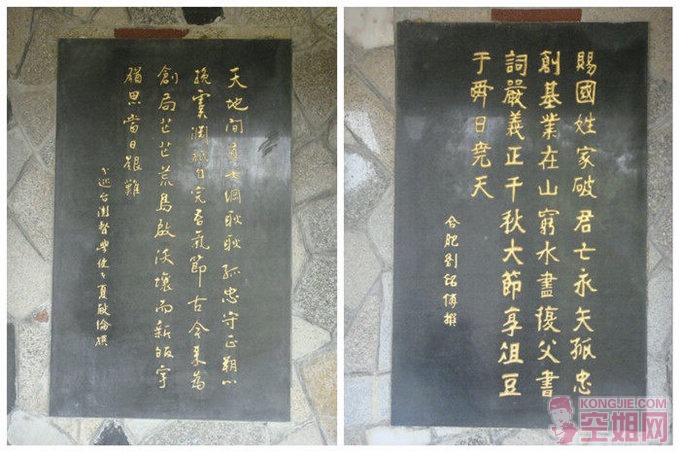 天地間有大綱耿耿孤忠守正朔以
挽虞淵祇自完吾氣節古今來為
創局芒芒荒島啟沃壤而新版宇
猶思當日艱難
巡台澎督學使者夏獻綸撰
賜國姓家破君亡永矢孤忠
創基業在山窮水盡復父書
詞嚴義正千秋大節享俎豆
于舜日堯天
合肥劉銘傳撰
KONGJIE.COM
空姐网